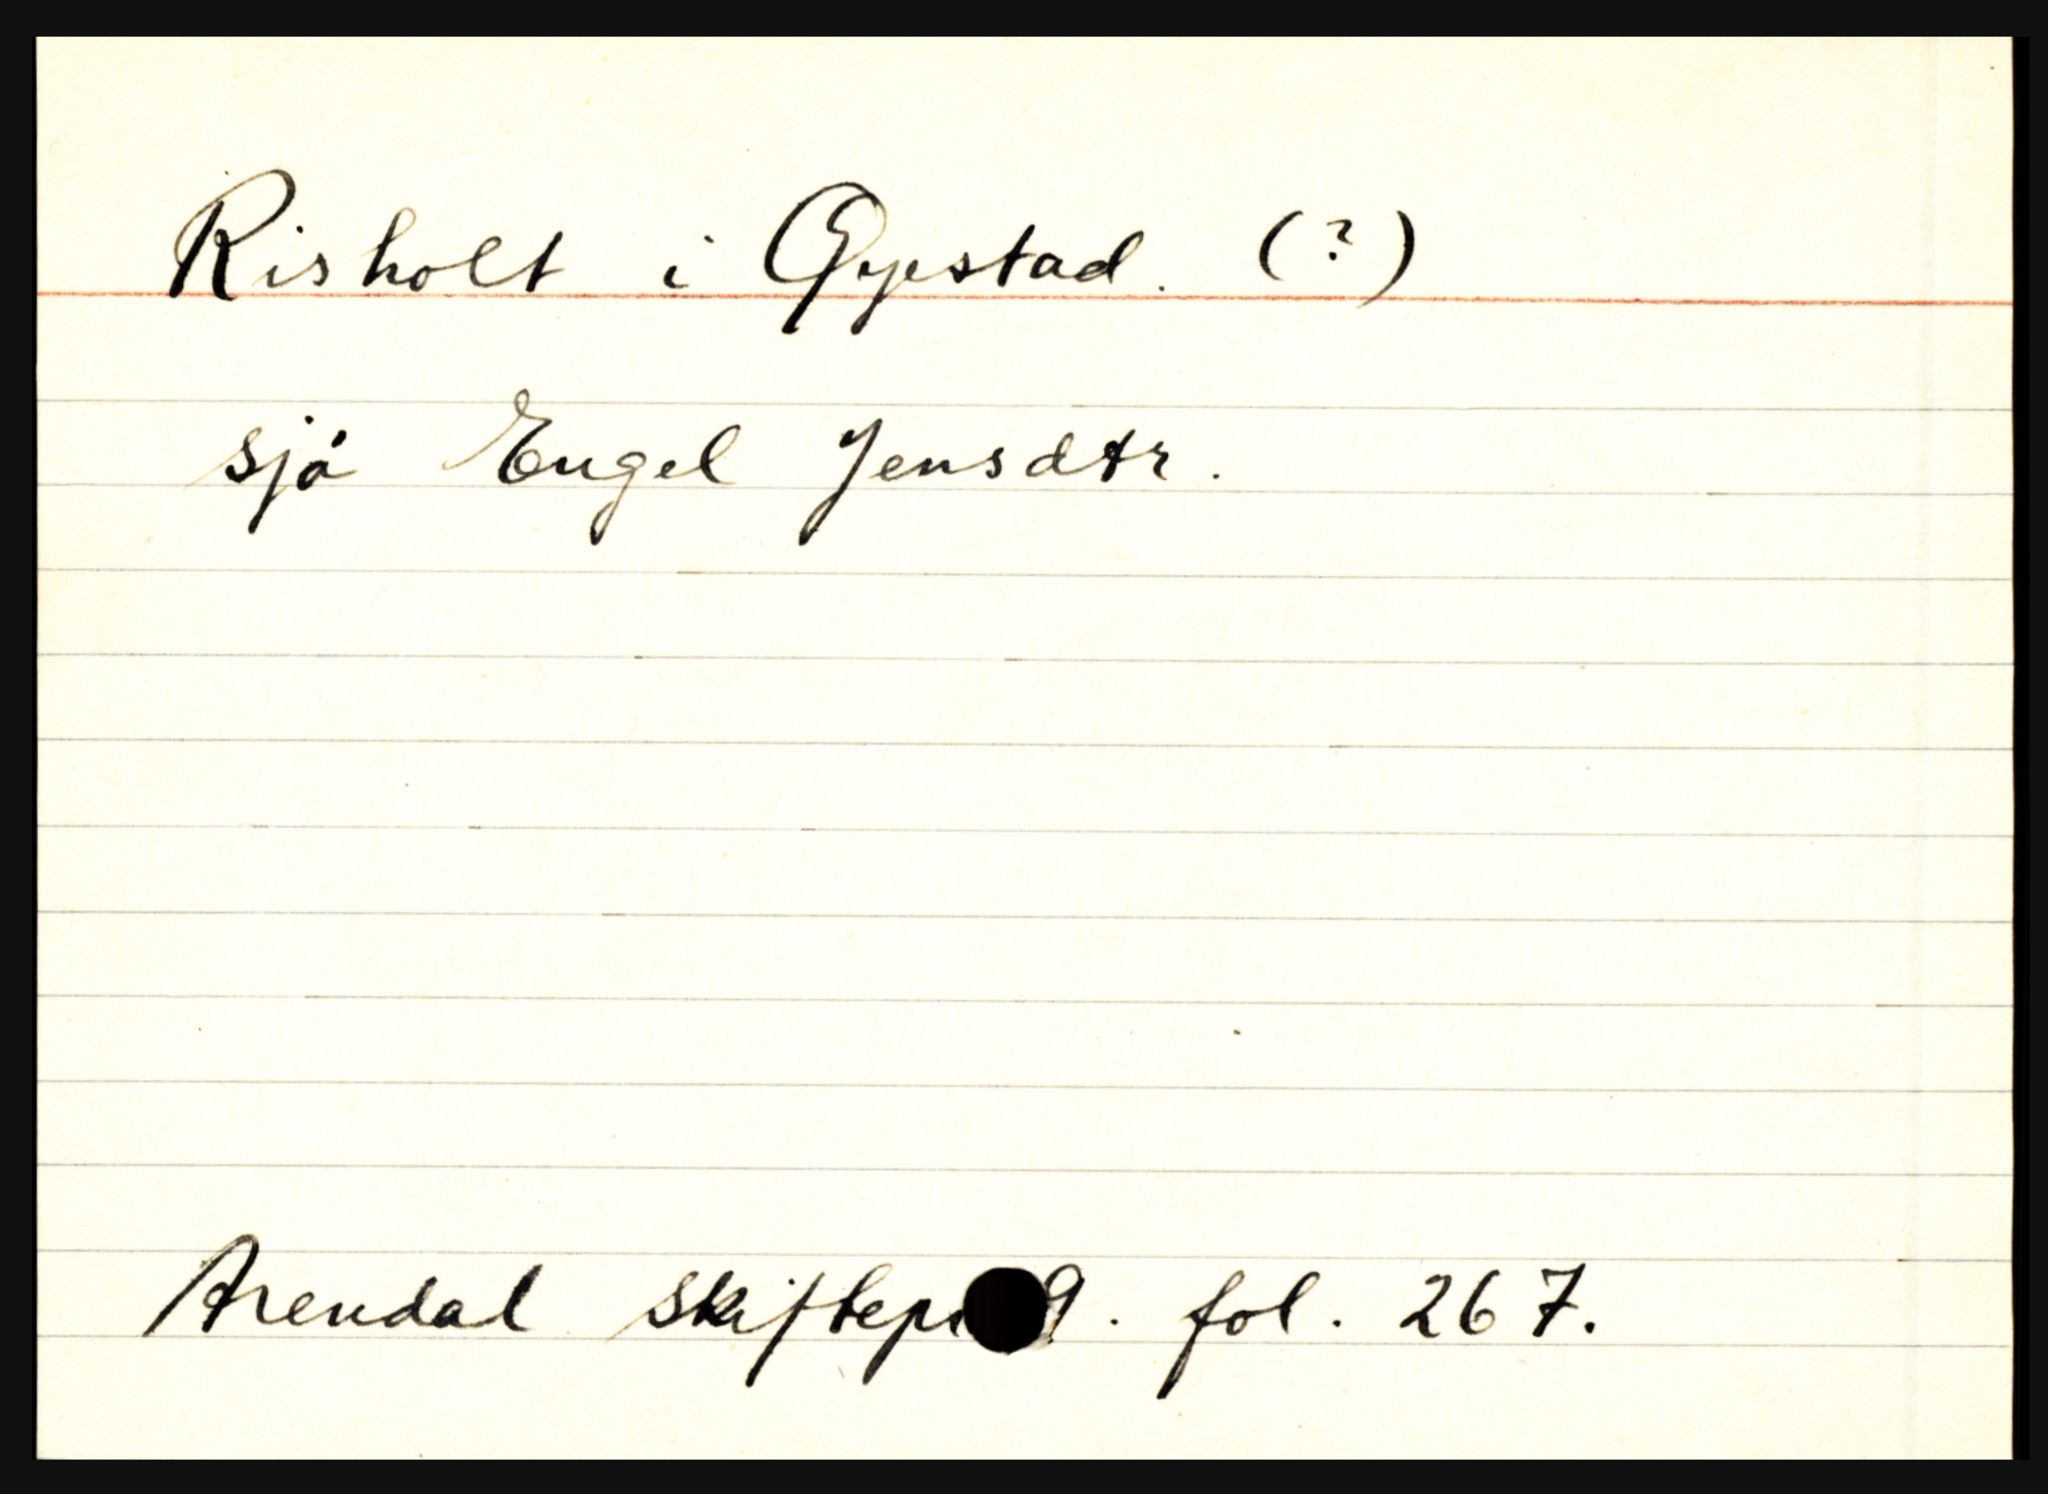 Risholt i Øyestad. (?)
sjå Engel Jensdtr.
Arendal skiftepr 9. fol. 267.